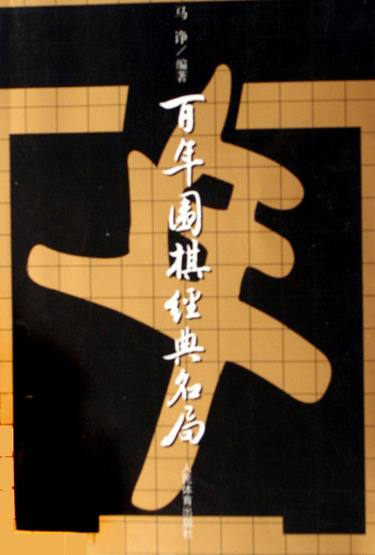 马 诤／编著
百年围棋經典名局
人民体育出版社